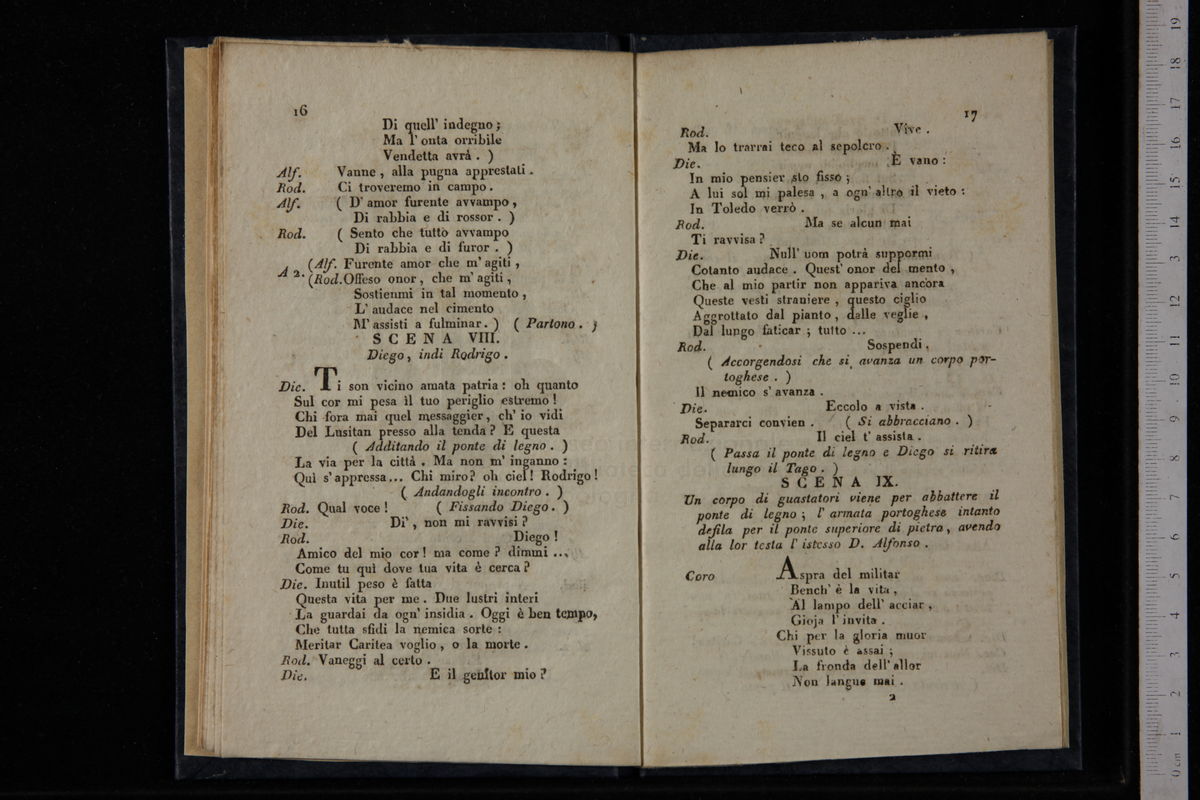 16
Di quell' indegno ;
Ma l' onta orribile
Vendetta avrà . )
Alf. Vanne , alla pugna apprestati .
Rod. Ci troveremo in campo .
Alf. ( D' amor furente avvampo ,
Di rabbia e di rossor . )
Rod. ( Sento che tutto avvampo
Di rabbia e di furor . )
A 2. (Alf. Furente amor che m' agiti ,
(Rod. Offeso onor , che m' agiti ,
Sostienmi in tal momento ,
L' audace nel cimento
M' assisti a fulminar . ) ( Partono . )
SCENA VIII.
Diego , indi Rodrigo .
Die. Ti son vicino amata patria : oh quanto
Sul cor mi pesa il tuo periglio estremo !
Chi fora mai quel messaggier , ch' io vidi
Del Lusitan presso alla tenda ? E questa
( Additando il ponte di legno . )
La via per la città . Ma non m' inganno :
Quì s' appressa ... Chi miro ? oh ciel ! Rodrigo !
( Andandogli incontro . )
Rod. Qual voce ! ( Fissando Diego . )
Die. Di' , non mi ravvisi ?
Rod. Diego !
Amico del mio cor ! ma come ? dimmi ...
Come tu quì dove tua vita è cerca ?
Die. Inutil peso è fatta
Questa vita per me . Due lustri interi
La guardai da ogn' insidia . Oggi è ben tempo,
Che tutta sfidi la nemica sorte :
Meritar Caritea voglio , o la morte .
Rod. Vaneggi al certo .
Die. E il genitor mio ?
17
Rod. Vive .
Ma lo trarrai teco al sepolcro .
Die. È vano :
In mio pensier sto fisso ;
A lui sol mi palesa , a ogn' altro il vieto :
In Toledo verrò .
Rod. Ma se alcun mai
Ti ravvisa ?
Die. Null' uom potrà suppormi
Cotanto audace . Quest' onor del mento ,
Che al mio partir non appariva ancora
Queste vesti straniere , questo ciglio
Aggrottato dal pianto , dalle veglie ,
Dal lungo faticar ; tutto ...
Rod. Sospendi ,
( Accorgendosi che si avanza un corpo por-
toghese . )
Il nemico s' avanza .
Die. Eccolo a vista .
Separarci convien . ( Si abbracciano . )
Rod. Il ciel t' assista .
( Passa il ponte di legno e Diego si ritira
lungo il Tago . )
SCENA IX.
Un corpo di guastatori viene per abbattere il
ponte di legno ; l' armata portoghese intanto
defila per il ponte superiore di pietra , avendo
alla lor testa l' istesso D. Alfonso .
Coro Aspra del militar
Bench' è la vita ,
Al lampo dell' acciar ,
Gioja l' invita .
Chi per la gloria muor
Vissuto è assai ;
La fronda dell' allor
Non langue mai .
2
0 cm 1 2 3 4 5 6 7 8 9 10 11 12 13 14 15 16 17 18 19